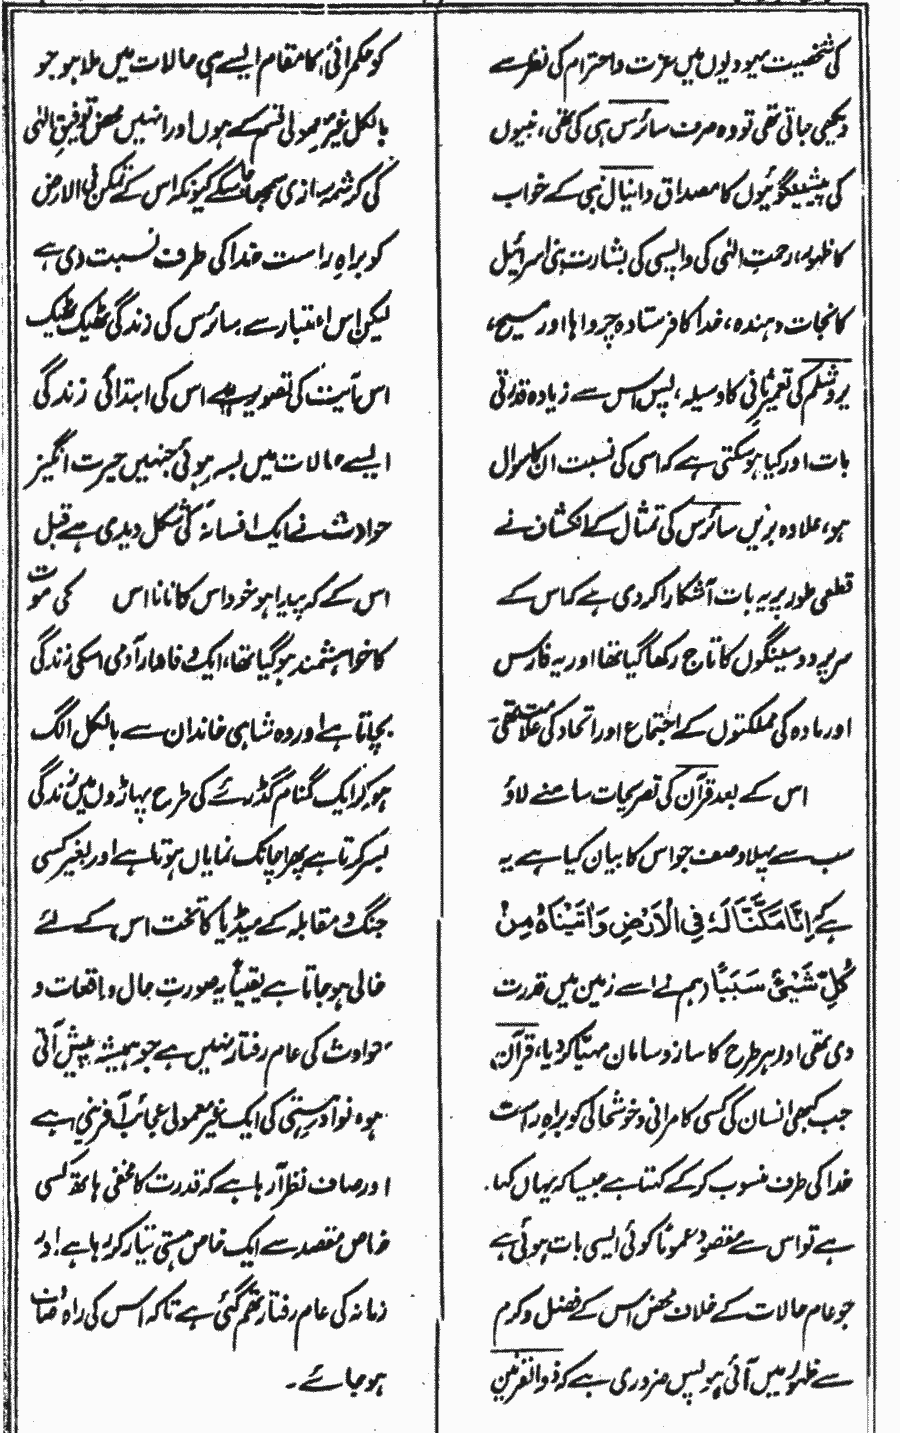 کی شخصیت یہودیوں میں عزت و احترام کی نظر سے
دیکھی جاتی تھی تو وہ صرف سائرس ہی کی تھی، نبیوں
کی پیشینگوئیوں کا مصداق دانیال نبی کے خواب
کا ظہور، رحمتِ الٰہی کی واپسی کی بشارت، بنی اسرائیل
کا نجات دہندہ، خدا کا فرستادہ چرواہا اور مسیح،
یروشلم کی تعمیرِ ثانی کا وسیلہ، پس اس سے زیادہ قدرتی
بات اور کیا ہو سکتی ہے کہ اسی کی نسبت ان کا سوال
ہو، علاوہ بزیں سائرس کی تمثال کے انکشاف نے
قطعی طور پر یہ بات آشکارا کر دی ہے کہ اس کے
سر پر دو سینگوں کا تاج رکھا گیا تھا اور یہ فارس
اور مادہ کی مملکتوں کے اجتماع اور اتحاد کی علامت تھی
اس کے بعد قرآن کی تصریحات سامنے لاؤ
سب سے پہلا وصف جو اس کا بیان کیا ہے یہ
ہے اِنَّا مَكَّنَّا لَهٗ فِي الْاَرْضِ وَاٰتَيْنَاهُ مِنْ
كُلِّ شَيْئٍ سَبَبًا (ہم نے اسے زمین میں قدرت
دی تھی اور ہر طرح کا ساز و سامان مہیا کر دیا، قرآن
جب کبھی انسان کی کسی کامرانی و خوشحالی کو براہِ راست
خدا کی طرف منسوب کر کے کہتا ہے جیسا کہ یہاں کہا
ہے تو اس سے مقصود عموماً کوئی ایسی بات ہوئی ہے
جو عام حالات کے خلاف محض اس کے فضل و کرم
سے ظہور میں آئی ہو پس ضروری ہے کہ ذوالقرنین
کو حکمرانی کا مقام ایسے ہی حالات میں ملا ہو جو
بالکل غیر معمولی قسم کے ہوں اور انہیں محض توفیقِ الٰہی
کی کرشمہ سازی سمجھا جا سکے کیونکہ اس کے تمکن فی الارض
کو براہِ راست خدا کی طرف نسبت دی ہے
لیکن اس اعتبار سے سائرس کی زندگی ٹھیک ٹھیک
اس آیت کی تصویر ہے اس کی ابتدائی زندگی
ایسے حالات میں بسر ہوئی جنہیں حیرت انگیز
حوادث نے ایک افسانہ کی شکل دیدی ہے قبل
اس کے کہ پیدا ہو خود اس کا نانا اس کی موت
کا خواہشمند ہو گیا تھا، ایک وفادار آدمی اسکی زندگی
بچاتا ہے اور وہ شاہی خاندان سے بالکل الگ
ہو کر ایک گمنام گڈرئے کی طرح پہاڑوں میں زندگی
بسر کرتا ہے پھر اچانک نمایاں ہوتا ہے اور بغیر کسی
جنگ و مقابلہ کے میڈیا کا تخت اس کے لئے
خالی ہو جاتا ہے یقیناً یہ صورتِ حال واقعات و
حوادث کی عام رفتار نہیں ہے جو ہمیشہ پیش آتی
ہو، نوادرِ ہستی کی ایک غیر معمولی عجائب آفرینی ہے
اور صاف نظر آ رہا ہے کہ قدرت کا مخفی ہاتھ کسی
خاص مقصد سے ایک خاص ہستی تیار کر رہا ہے اور
زمانہ کی عام رفتار تھم گئی ہے تاکہ اس کی راہ صاف
ہو جائے۔